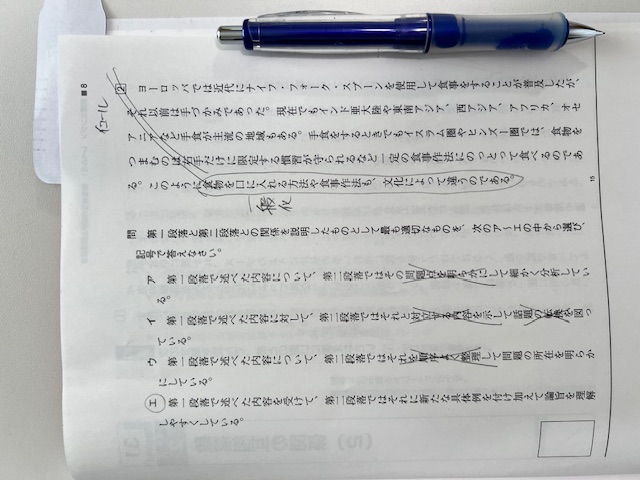 8
イコール
2 ヨーロッパでは近代にナイフ・フォーク・スプーンを使用して食事をすることが普及したが、
それ以前は手づかみであった。現在でもインド亜大陸や東南アジア、西アジア、アフリカ、オセ
アニアなど手食が主流の地域もある。手食をするときでもイスラム圏やヒンズー圏では、食物を
つまむのは右手だけに限定する慣習が守られるなど一定の食事作法にのっとって食べるのであ
る。このように食物を口に入れる方法や食事作法も、文化によって違うのである。
15
一般化
問 第一段落と第二段落との関係を説明したものとして最も適切なものを、次のア~エの中から選び、
記号で答えなさい。
ア 第一段落で述べた内容について、第二段落ではその問題点を明らかにして細かく分析してい
る。
イ 第一段落で述べた内容に対して、第二段落ではそれと対立する内容を示して話題の転換を図っ
ている。
ウ 第一段落で述べた内容について、第二段落ではそれを順序よく整理して問題の所在を明らか
にしている。
エ 第一段落で述べた内容を受けて、第二段落ではそれに新たな具体例を付け加えて論旨を理解
しやすくしている。